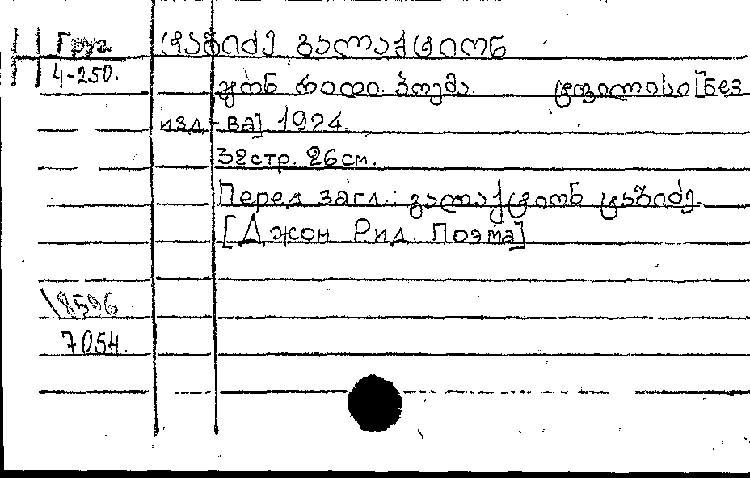 Груз
4-250.
ტაბიძე გალაქტიონ
ჯონ რიდი. პოემა. ტფილისი [Без
изд-ва] 1924.
32стр. 26см.
Перед загл.: გალაქტიონ ტაბიძე.
[Джон Рид. Поэма]
18596
7054.